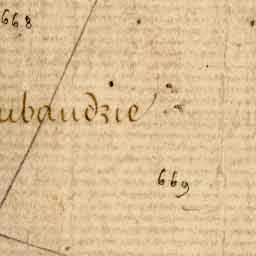 668
ubaudrie
669